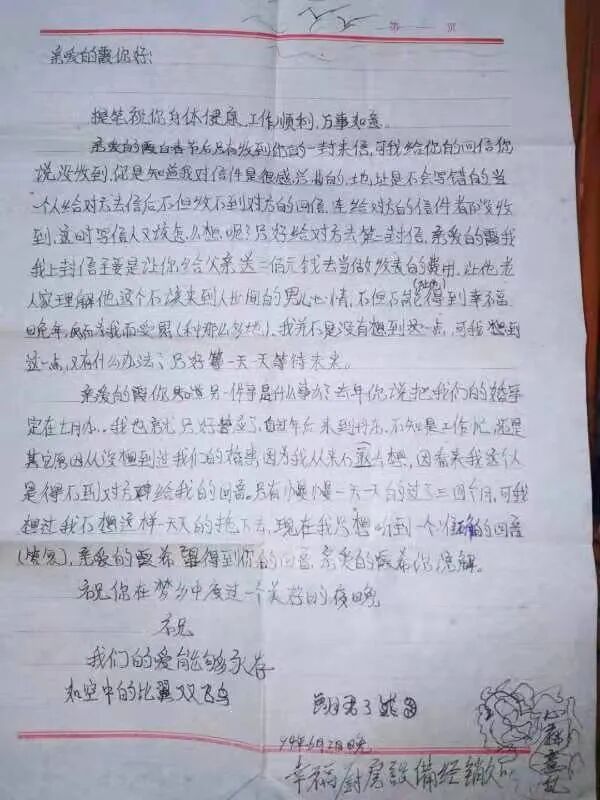 第 页
亲爱的霞你好:
提笔祝你身体健康,工作顺利,万事如意。
亲爱的霞自春节后只有收到你的一封来信,可我给你的回信你
说没收到,你是知道我对信件是很感兴趣的,地址是不会写错的当
一个人给对方去信后不但收不到对方的回信,连给对方的信件都没收
到,这时写信人又该怎么想呢?只好给对方去第二封信,亲爱的霞我
我上封信主要是让你给父亲送二佰元钱去当做收麦的费用,让他老
人家理解他这个不该来到人世间的男儿心情,不但不能得到幸福
晚年,反而为我而受累(种那么多地)。我并不是没有想到这一点,可我想到
这一点,又有什么办法?只好等一天天等待未来。
亲爱的霞你知道另一件事是什么事?去年你说把我们的婚事
定在七月份,我也就只好答应了,自过年后来到,不知是工作忙,还是
其它原因从没想到过我们的婚事,因为我从来不去想,因看来我这个人
是得不到对方给我的回音。只有慢慢一天天的过了三四个月,可我
想过我不想这样一天天的拖下去,现在我只想听到一个准确的回音
(答复),亲爱的霞希望得到你的回音,亲爱的霞希你谅解。
祝你在梦乡中度过一个美好的夜晚
祝
我们的爱能够永存
和空中的比翼双飞鸟
94年6月2日晚
幸福厨房設備经销处